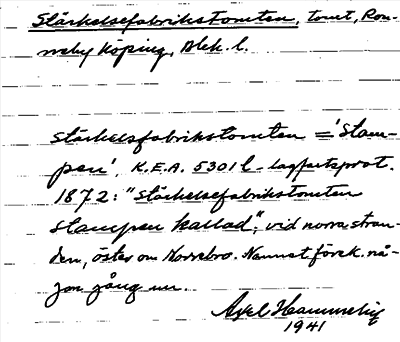 Stärkelsefabrikstomten, tomt, Ron-
neby köping, Blek. l.
Stärkelsefabrikstomten = 'Stam-
pen', K.E.A. 5301 l - lagfartsprot.
1872: "Stärkelsefabrikstomten
Stampen kallad", vid norra stran-
den, öster om Norrebro. Namnet förek. nå-
gon gång nu.
Axel
1941